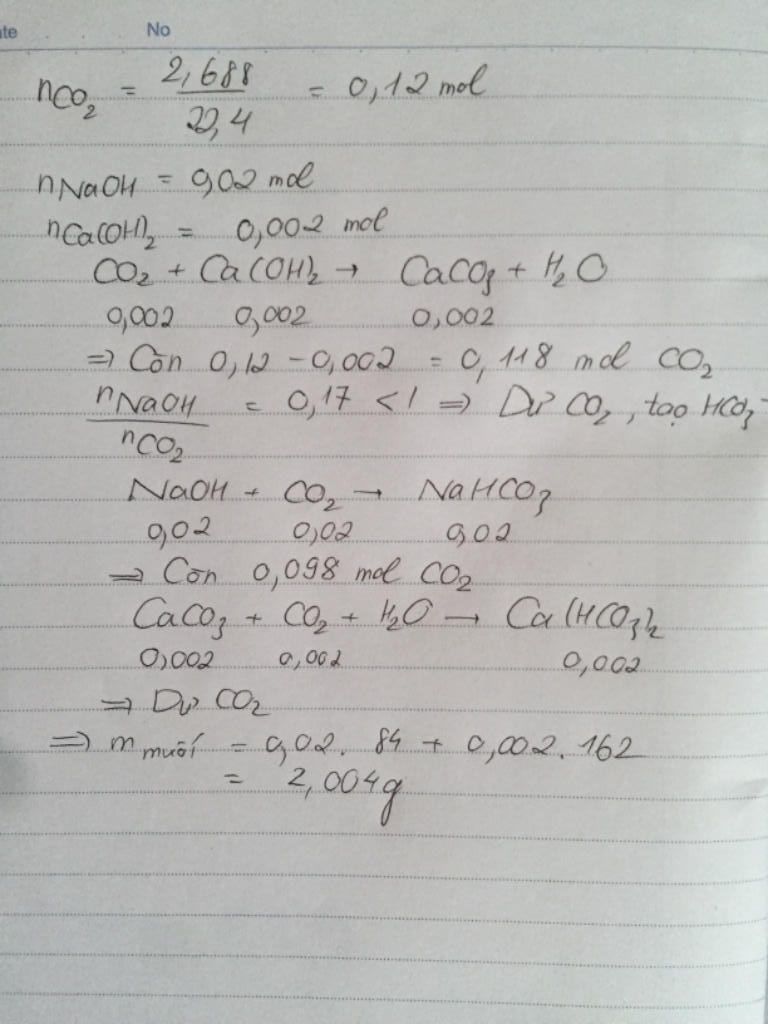 te No
nCO₂ = 2,688/22,4 = 0,12 mol
nNaOH = 0,02 mol
nCa(OH)₂ = 0,002 mol
CO₂ + Ca(OH)₂ → CaCO₃ + H₂O
0,002 0,002 0,002
⇒ Còn 0,12 - 0,002 = 0,118 mol CO₂
nNaOH/nCO₂ = 0,17 < 1 ⇒ Dư CO₂, tạo HCO₃⁻
NaOH + CO₂ → NaHCO₃
0,02 0,02 0,02
⇒ Còn 0,098 mol CO₂
CaCO₃ + CO₂ + H₂O → Ca(HCO₃)₂
0,002 0,002 0,002
⇒ Dư CO₂
⇒ m muối = 0,02. 84 + 0,002. 162
= 2,004g